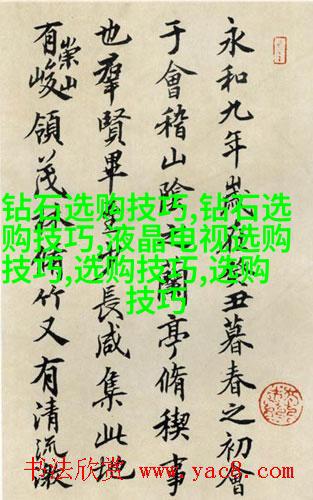 永和九年歲在癸丑暮春之初會
于會稽山陰之蘭亭脩稧事
也羣賢畢至少長咸集此地
有崇山峻領茂林脩竹又有清流激
钻石选购技巧,钻石选
购技巧,液晶电视选购
技巧,选购技巧,选购
技巧
书法欣赏 www.yac8.com